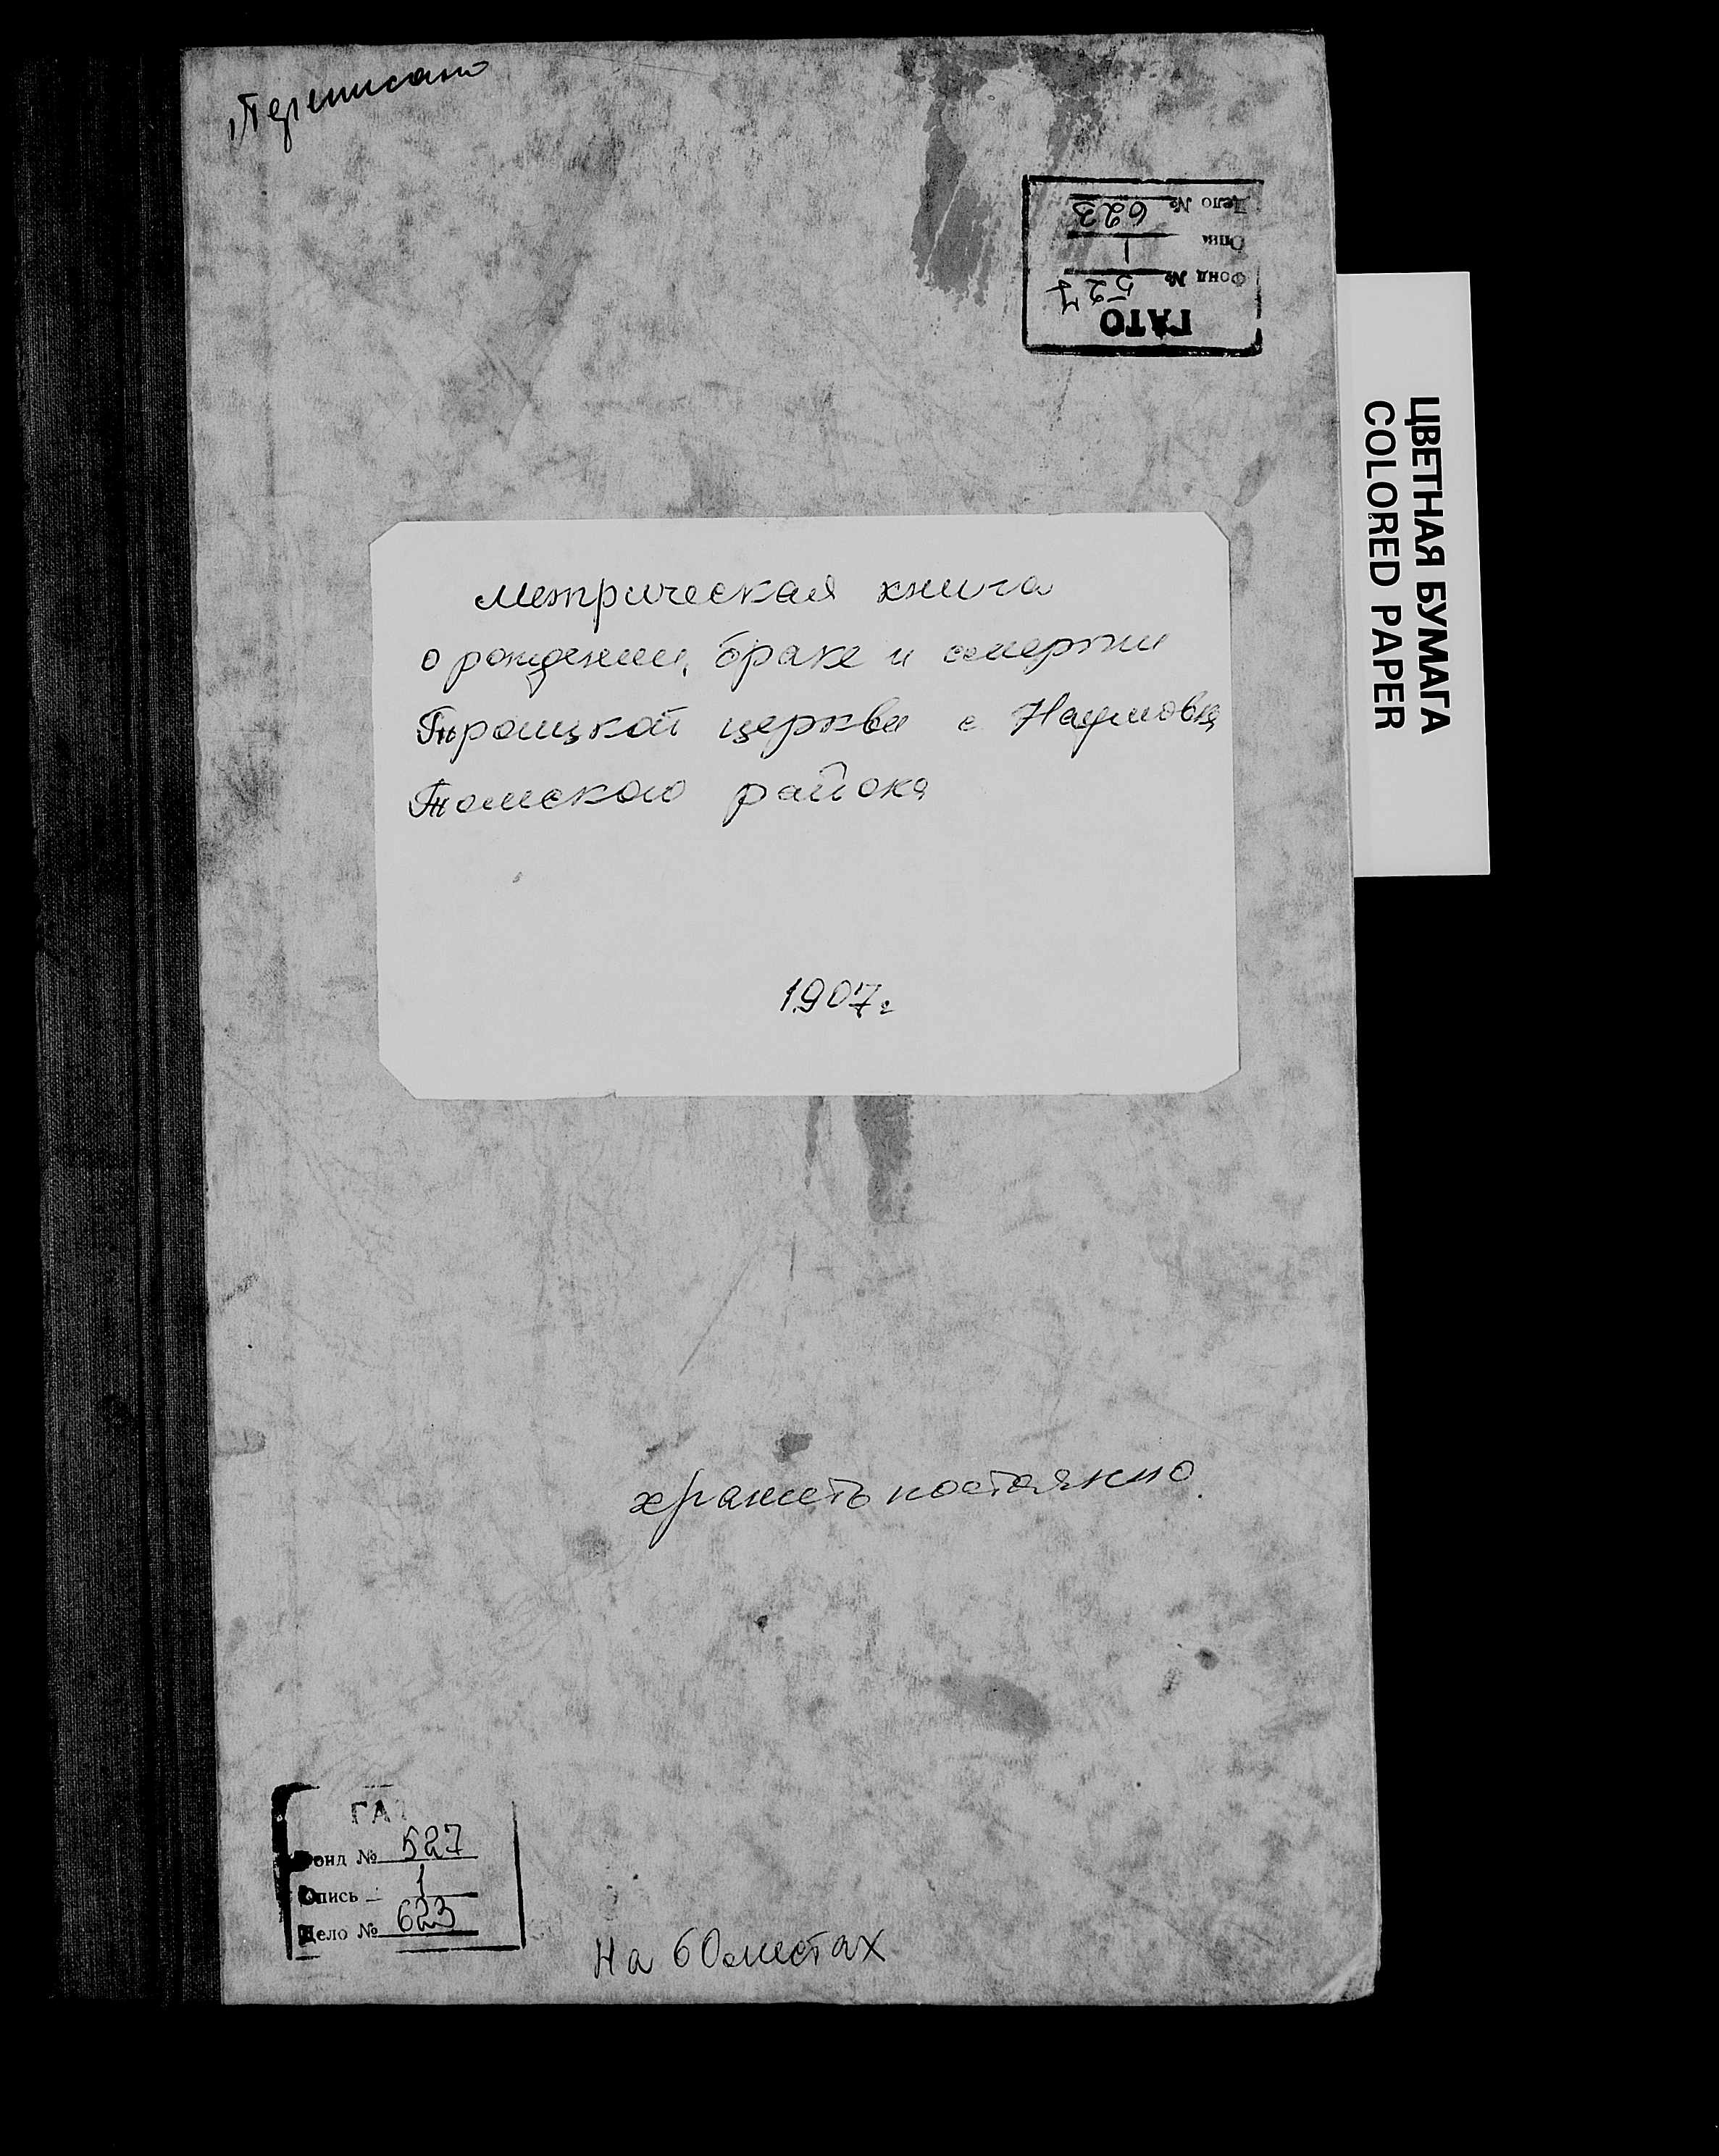 Переписано
ГАТО
Фонд № 527
Опись 1
Дело № 623
ЦВЕТНАЯ БУМАГА
COLORED PAPER
Метрическая книга
о рождении, браке и смерти
Троицкой церкви с. Наумовка
Томского района
1907г
хранить постоянно.
ГА
Фонд № 527
Опись 1
Дело № 623
На 60 листах